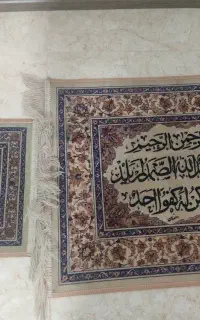 حمن الرحيم
الله الصمد لم يلد
كن له كفوا احد